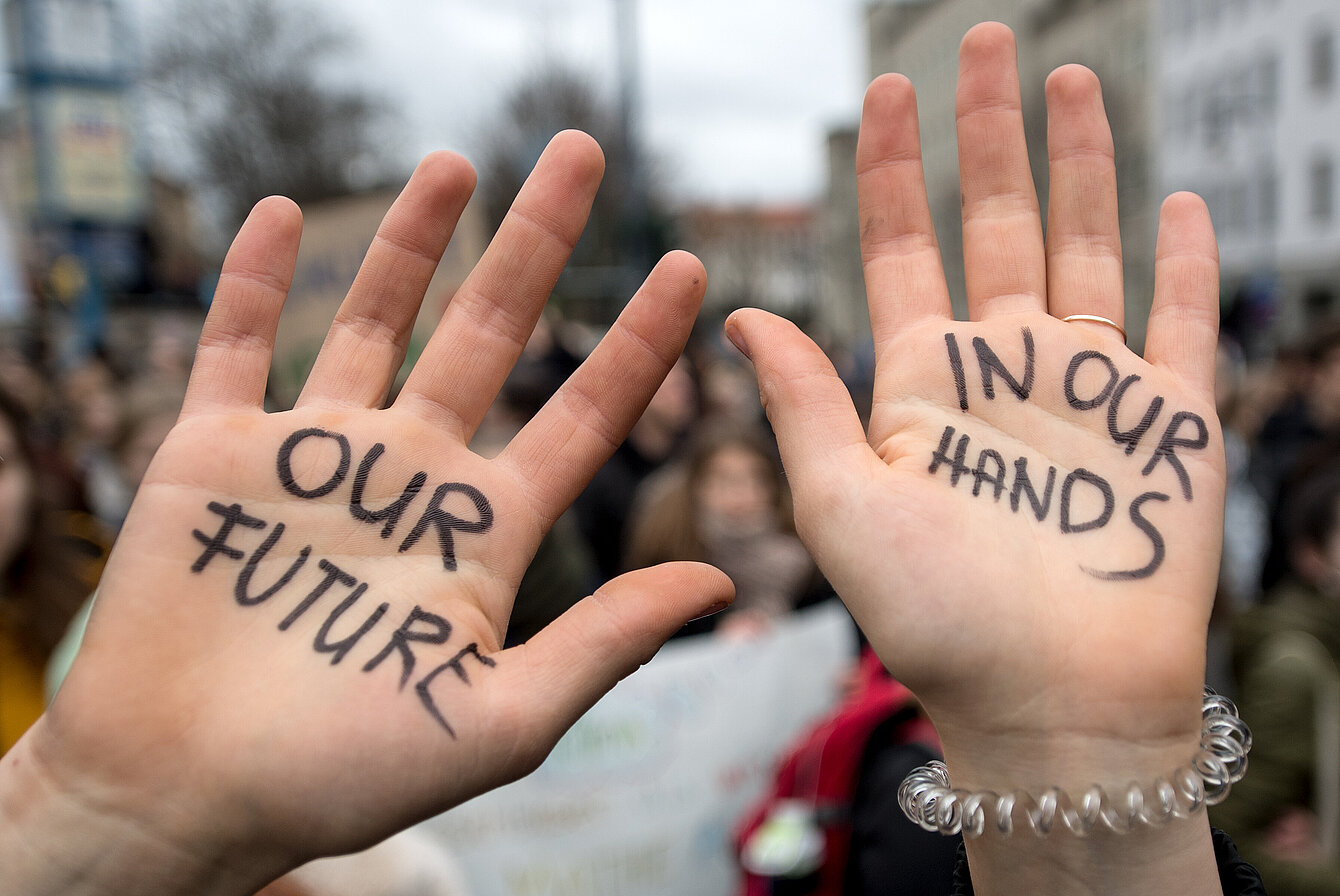 OUR
FUTURE
IN OUR
HANDS